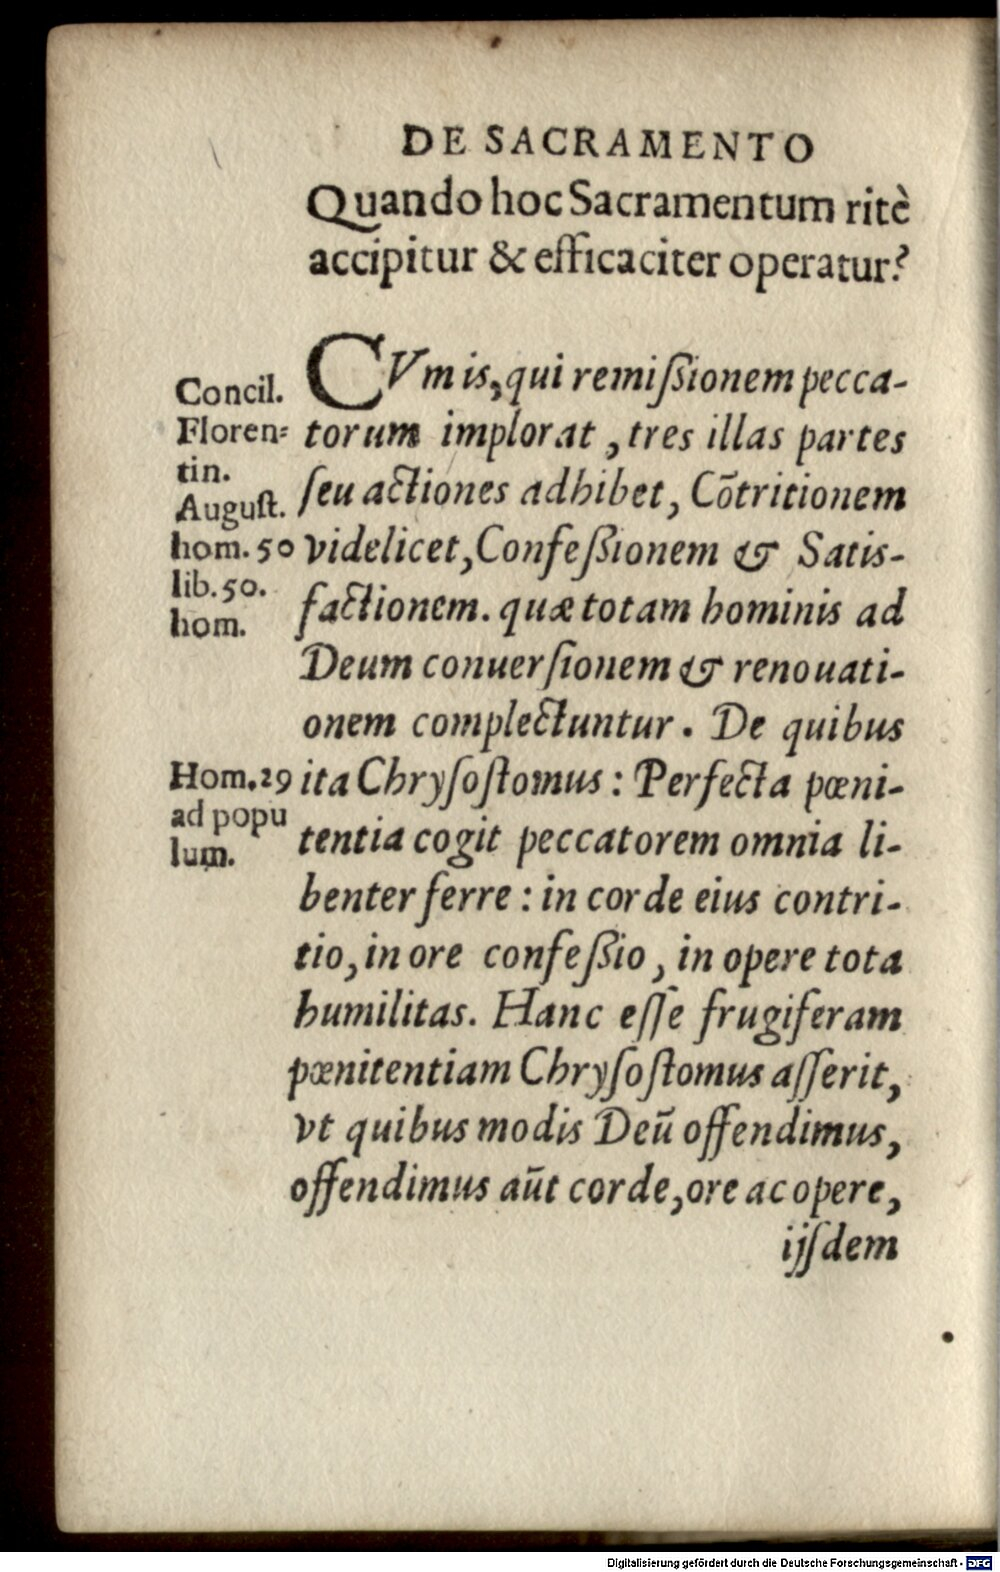 DE SACRAMENTO
Quando hoc Sacramentum ritè
accipitur & efficaciter operatur?
CVm is, qui remißionem pecca-
torum implorat, tres illas partes
ſeu actiones adhibet, Cōtritionem
videlicet, Confeßionem & Satis-
factionem. quæ totam hominis ad
Deum conuerſionem & renouati-
onem complectuntur. De quibus
ita Chryſoſtomus: Perfecta pœni-
tentia cogit peccatorem omnia li-
benter ferre: in corde eius contri-
tio, in ore confeßio, in opere tota
humilitas. Hanc eſſe frugiferam
pœnitentiam Chryſoſtomus aſſerit,
vt quibus modis Deū offendimus,
offendimus aūt corde, ore ac opere,
ijſdem
Concil.
Floren=
tin.
Auguſt.
hom. 50
lib. 50.
hom.
Hom. 29
ad popu
lum.
Digitalisierung gefördert durch die Deutsche Forschungsgemeinschaft - DFG